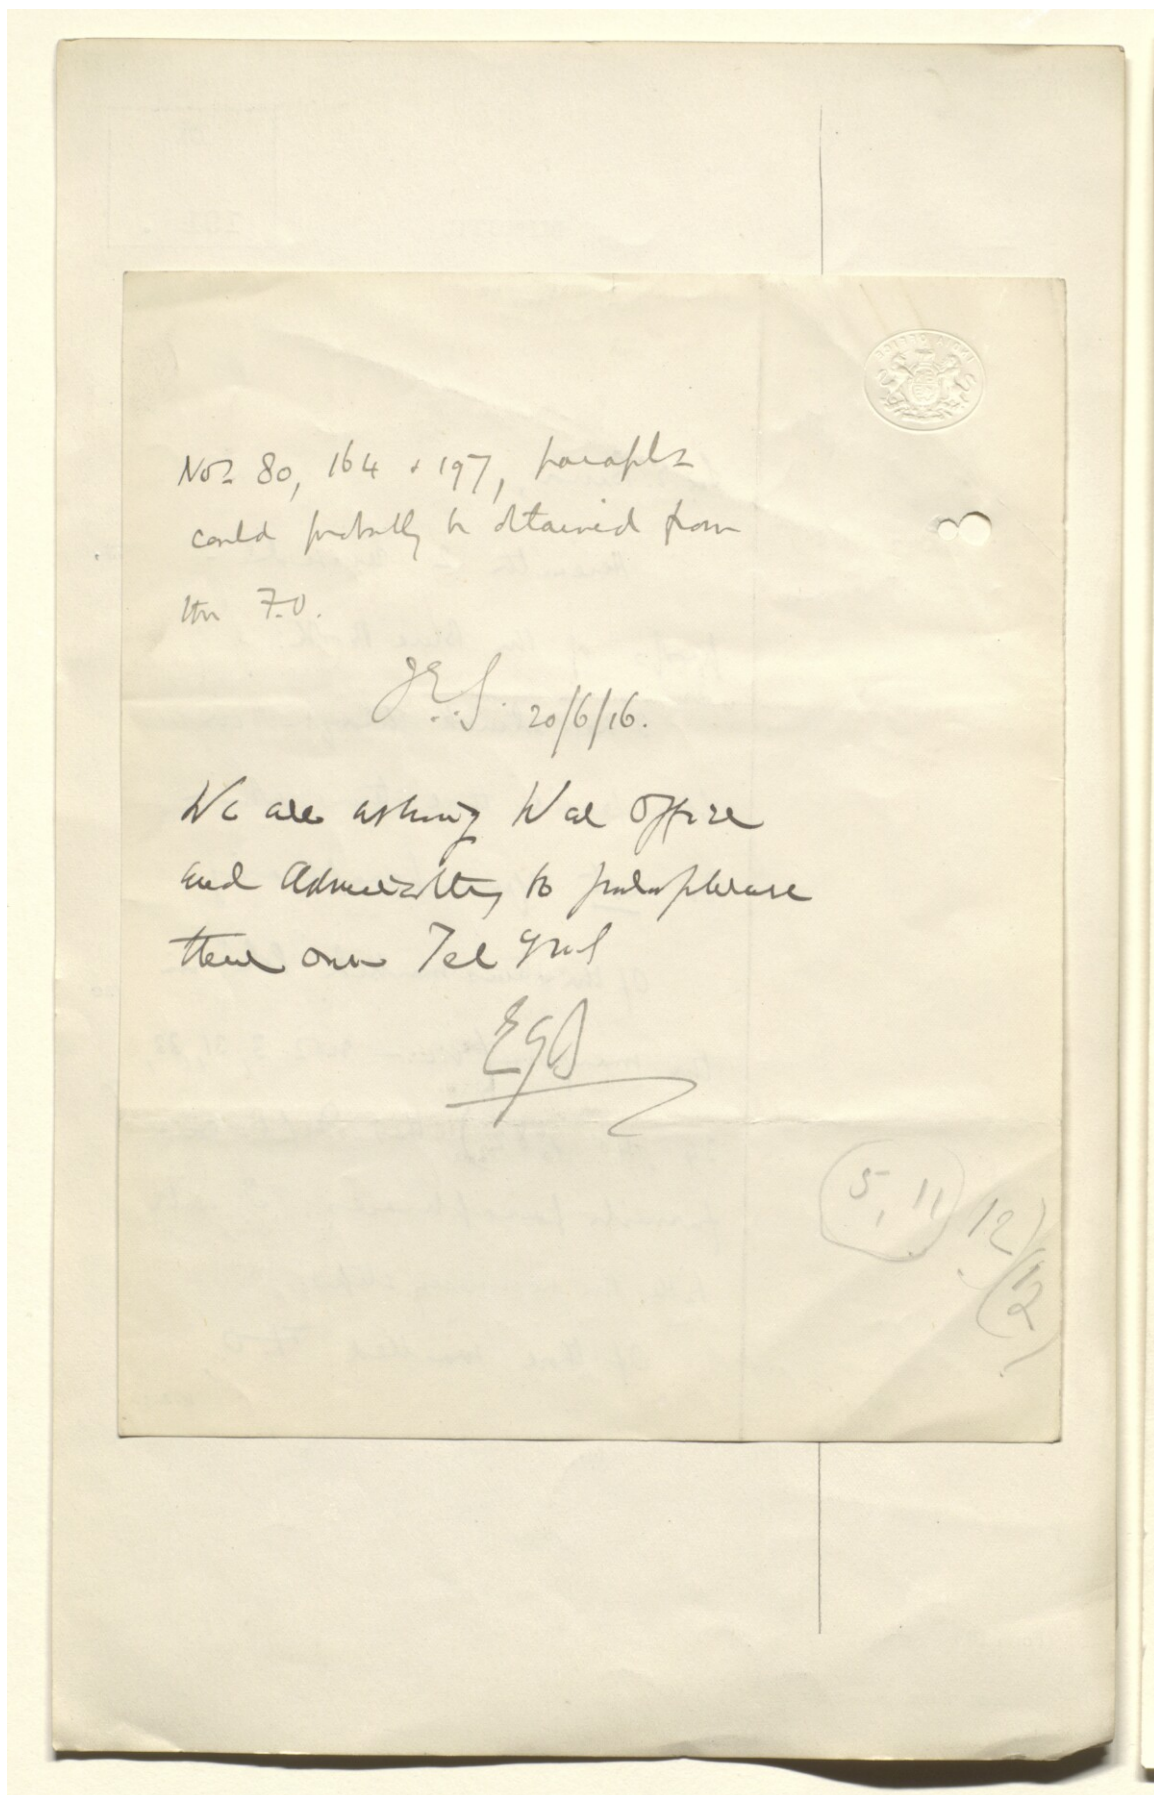 Nos 80, 164 + 197, paraphs
could probably be obtained from
the F.O.
J.E.S. 20/6/16.
We are asking War Office
and Admiralty to paraphrase
their own Tel grms
EGS
5, 11
12
12